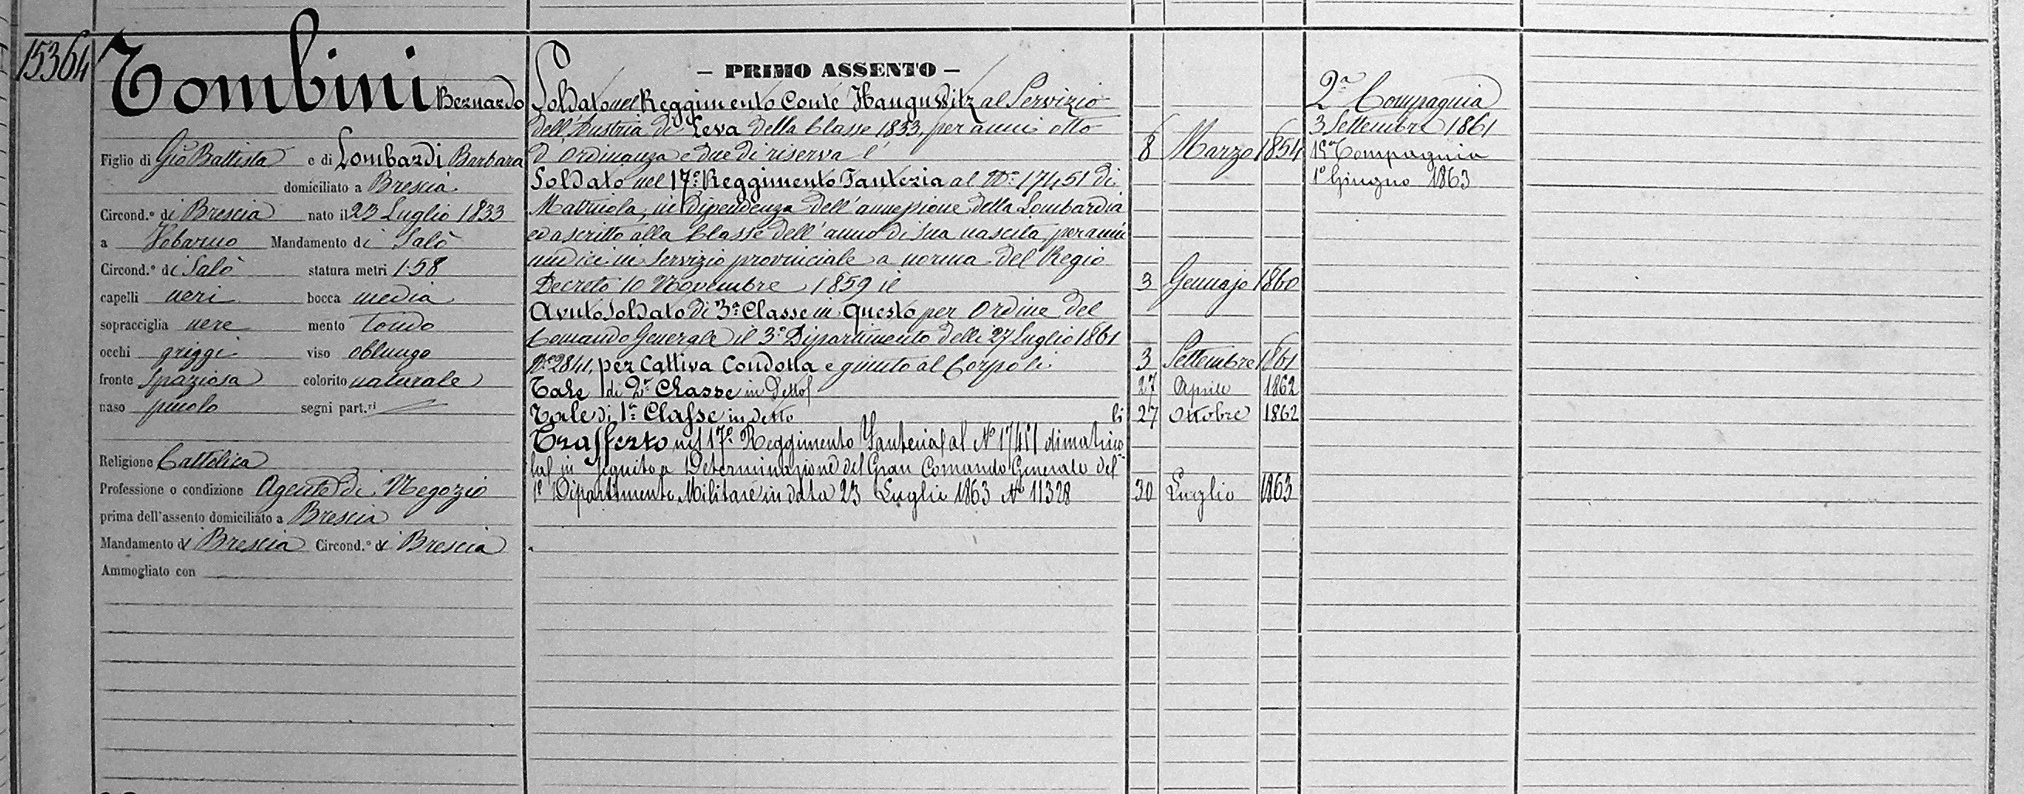 15364
Tombini Bernardo
Figlio di Gio Battista e di Lombardi Barbara
domiciliato a Brescia
Circond.º di Brescia nato il 23 Luglio 1833
a Vobarno Mandamento di Salò
Circond.º di Salò statura metri 1.58
capelli neri bocca media
sopracciglia nere mento tondo
occhi griggi viso oblungo
fronte spaziosa colorito naturale
naso picolo segni part.ri
Religione Cattolica
Professione o condizione Agente di Negozio
prima dell'assento domiciliato a Brescia
Mandamento di Brescia Circond.º di Brescia
Ammogliato con
— PRIMO ASSENTO —
Soldato nel Reggimento Conte Haugwitz al Servizio
dell'Austria di Leva della Classe 1833, per anni otto
d'Ordinanza e due di riserva l' 8 Marzo 1854
Soldato nel 17º Reggimento Fanteria al Nº 17451 di
Matricola, in dipendenza dell'annessione della Lombardia
ed ascritto alla Classe dell'anno di sua nascita per anni
undici in Servizio provinciale a norma del Regio
Decreto 10 Novembre 1859 il 3 Gennajo 1860
Avuto Soldato di 3ª Classe in Questo per Ordine del
Comando Generale il 3º Dipartimento delli 27 Luglio 1861
Nº 2841, per Cattiva Condotta e giunto al Corpo li 3 Settembre 1861
Tale di 2ª Classe in detto 27 Aprile 1862
Tale di 1ª Classe in detto li 27 Ottobre 1862
Trasferto nel 17º Reggimento Fanteria al Nº 17451 di matrico
la in seguito a Determinazione del Gran Comando Generale del
1º Dipartimento Militare in data 23 Luglio 1863 Nº 11328 30 Luglio 1863
2ª Compagnia
3 Settembre 1861
15ª Compagnia
1º Giugno 1863